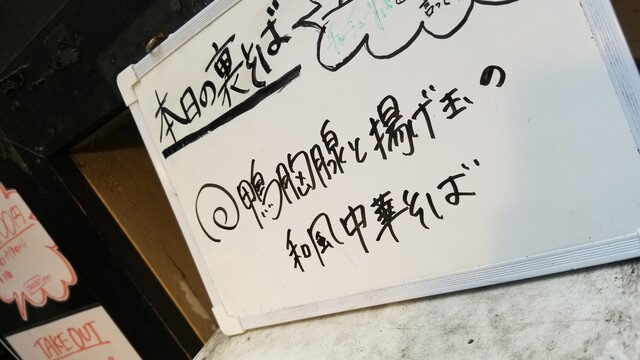 本日の裏そば
言って
@鴨胸腺と揚げ玉の
和風中華そば
TAKE OUT